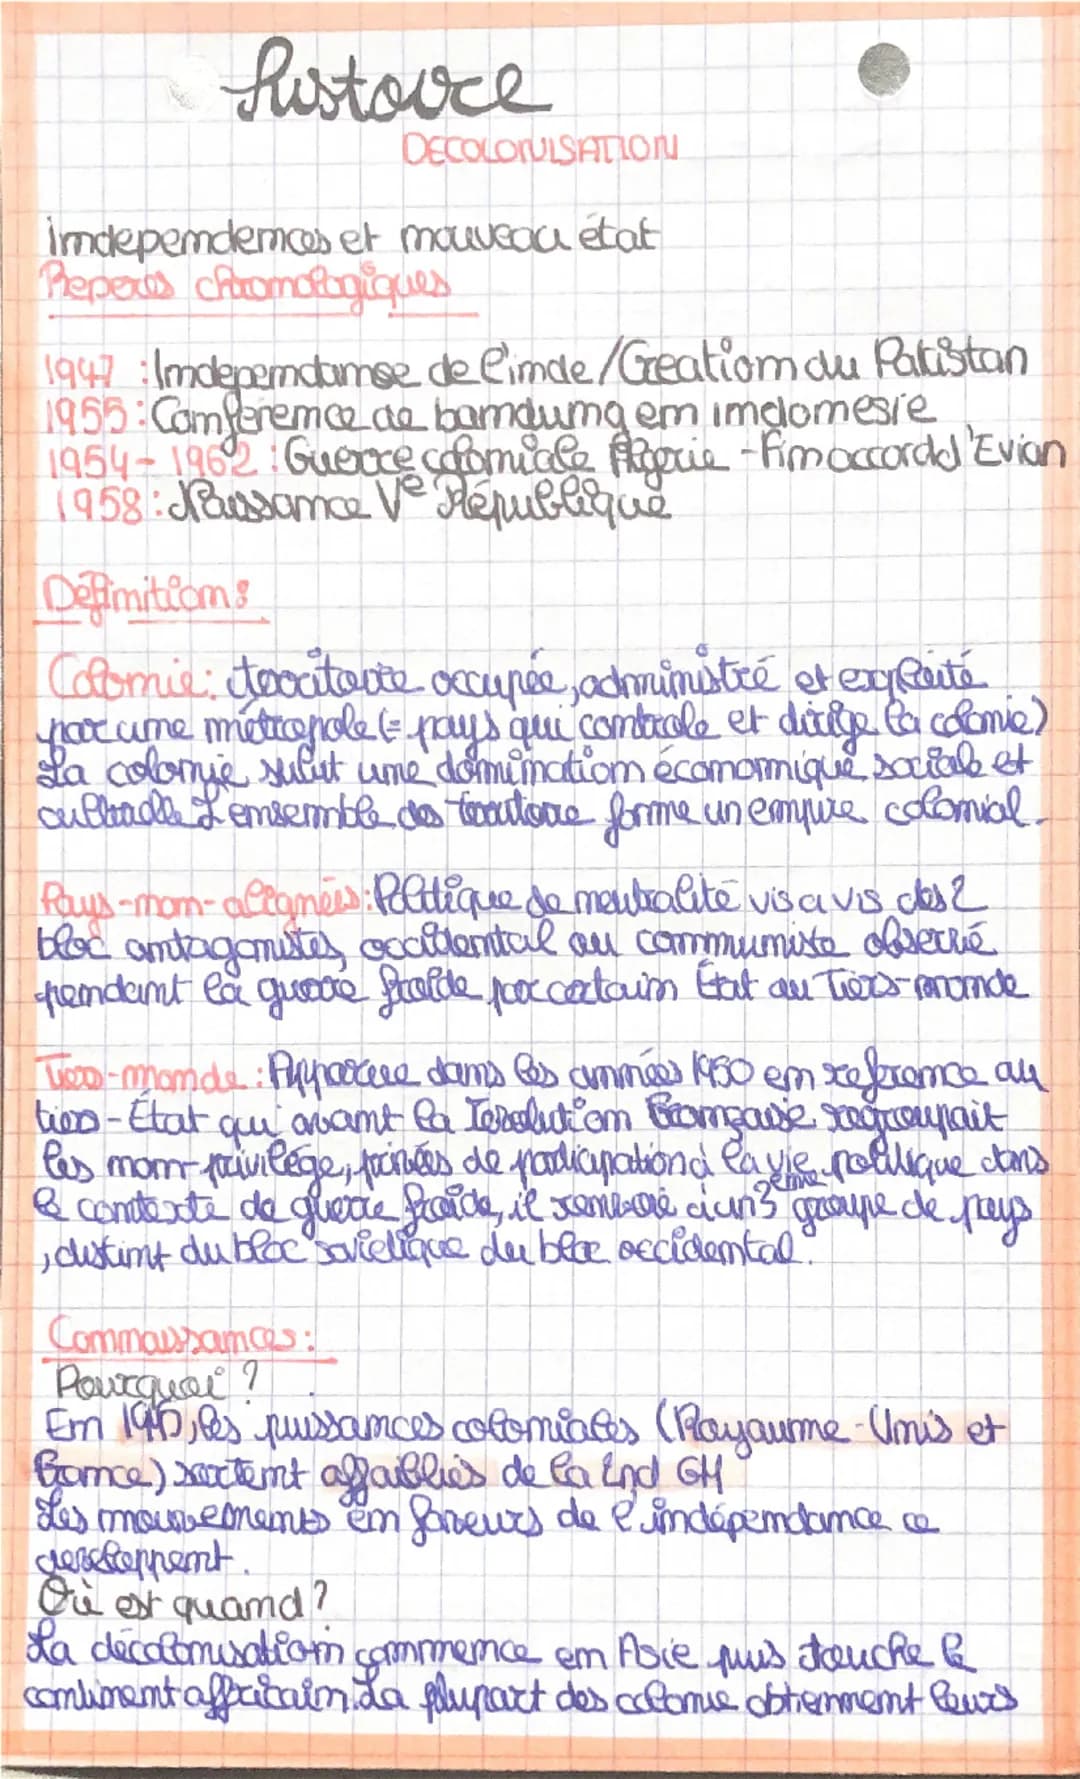 histoire
DECOLONISATION
independences et nouveau état
Reperes chronologiques
1947 : Independanse de l'inde / Creation du Pakistan
1955 : Conference de bandung en indonesie
1954-1962 : Guerre coloniale Algerie - Fin accord d'Evian
1958 : Naissance Ve République
Definition :
Colonie : territoire occupée, administré et exploité
par une métropole (= pays qui controle et dirige la colonie)
La colonie subit une domination économique sociale et
culturelle L'ensemble des territoire forme un empire colonial.
Pays-non-alignées : Politique de neutralité vis a vis des 2
bloc antagonistes, occidental au communiste observé
pendant la guerre froide par certain État du Tiers-monde
Tiers-monde : Apparue dans les années 1950 en reference au
tiers-État qui avant la Revolution Française regroupait
les non-privilége, privées de participation à la vie politique dans
le contexte de guerre froide, il renvoie à un 3ème groupe de pays
, distint du bloc soviétique du bloc occidental.
Connaissances :
Pourquoi ?
En 1945, les puissances coloniales (Royaume-Unis et
France) sortent affaiblies de la 2nd GM
Les mouvements en faveurs de l'indépendance ce
developpent.
Où est quand ?
La décolonisation commence en Asie puis touche le
continent affricain. La plupart des colonie obtiennent leurs